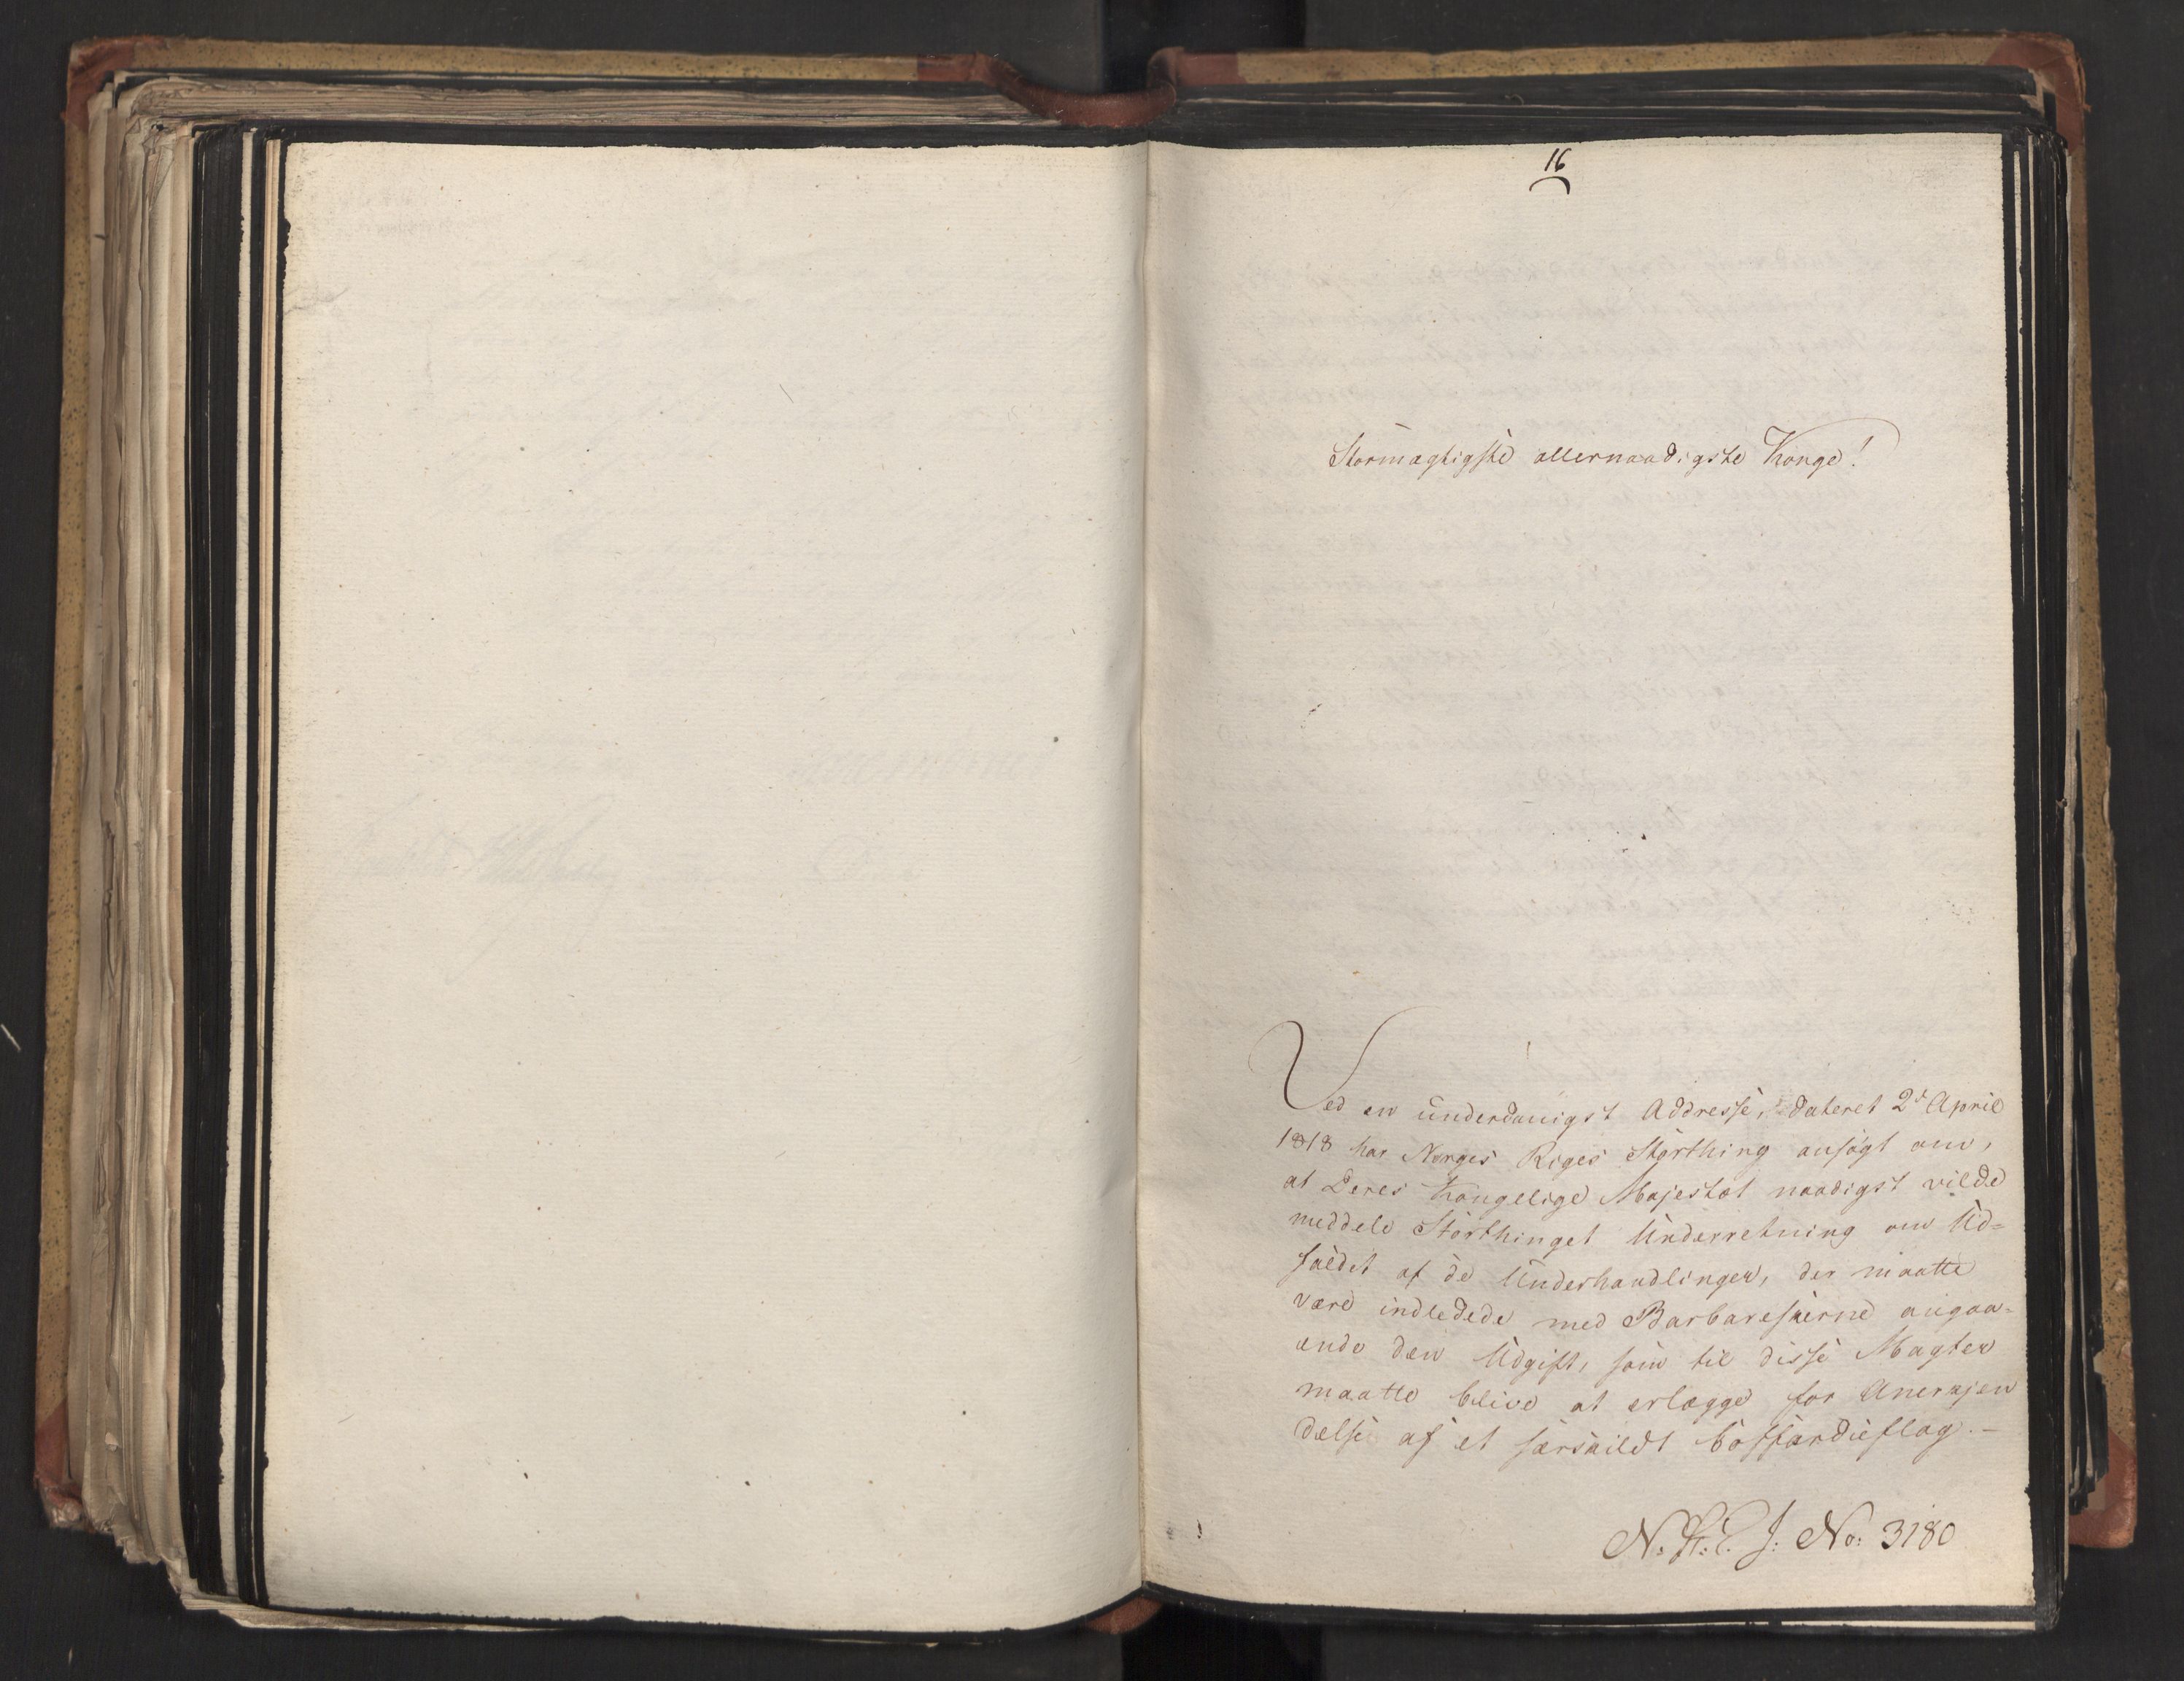 16
Stormægtigste allernaadigste Konge!
Ved en underdanigst Addresse, dateret 2d April
1818 har Norges Riges Storthing ansøgt om,
at Deres Kongelige Majestæt naadigst vilde
meddele Storthinget Underretning om Ud=
faldet af de Underhandlinger, der maatte
være indledede med Barbareskerne angaa=
ende den Udgift, som til disse Magter
maatte blive at erlægge for Anerkjen
delse af et særskildt Coffardieflag. —
N. St. E. J. No: 3180